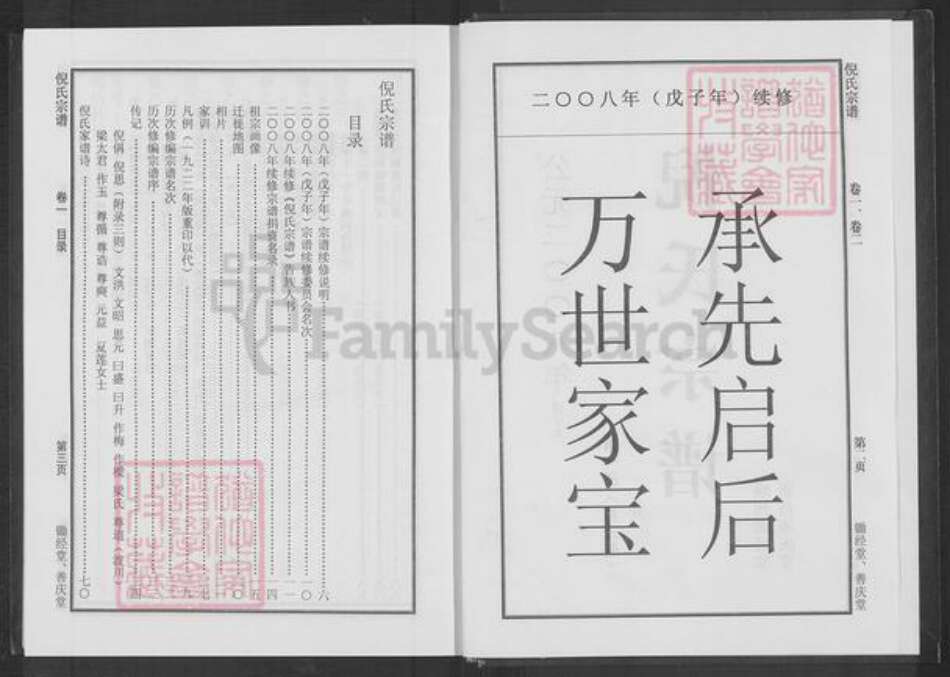 倪氏宗谱
卷一、卷二
第二页
锄经堂、善庆堂
二〇〇八年（戊子年）续修
承先启后
万世家宝
倪氏宗谱
目录
二〇〇八年（戊子年）宗谱续修说明 六
二〇〇八年（戊子年）宗谱续修委员会名次 一〇
二〇〇八年续修《倪氏宗谱》告族人书 一一
二〇〇八年续修宗谱捐资名录 一四
祖宗画像
迁徙地图
相片
家训
凡例（一九二二年版重印以代）
历次修编宗谱名次
历次修编宗谱序
传记
倪俩 倪思（附录三则） 文洪 文昭 思元 曰盛 曰升 作梅
梁太君 作玉 尊儒 尊诰 尊爽 元益 夏莲女士
倪氏家谱诗 七〇
倪氏宗谱
卷一 目录
第三页
锄经堂、善庆堂
FamilySearch